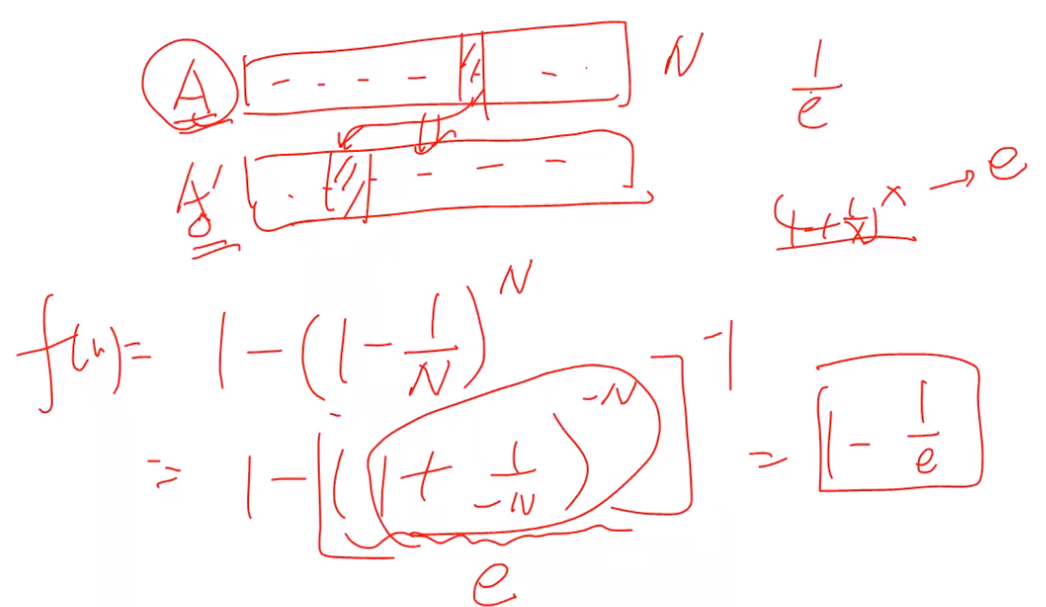 A N
1/e
A'
(1+1/x)^x → e
f(n) = 1-(1-1/N)^N
= 1-[((1+1/-N)^-N]^-1 = 1-1/e
e